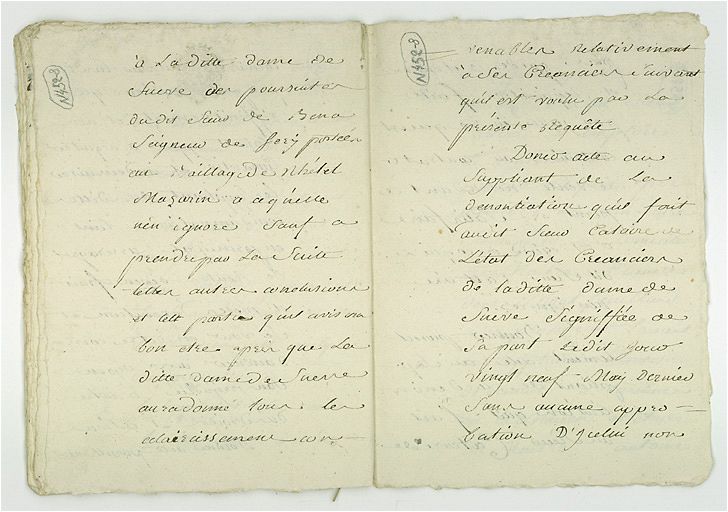 N452-8
à La ditte dame de
Suerre des poursuites
dudit Sieur de
Seigneur de portées
au Bailliage de Rhétel
Mazarin a ce quelle
n'en ignore Sauf a
prendre par La Suite
telles autres conclusions
et tell partie quil avisera
bon etre apres que La
ditte dame de Suerre
aura donné tous les
eclaircissement con-
N452-8
venables relativement
a Ses Creanciers Suivant
quil est par La
présente Requête
Donné acte au
Suppliant de La
denontiation quil fait
audit Sieur Cataire de
L'état des Creanciers
de la ditte dame de
Suerre Signiffiée de
Sa part Ledit jour
vingt neuf May Dernier
Sans aucune appro-
bation D'Icelui non